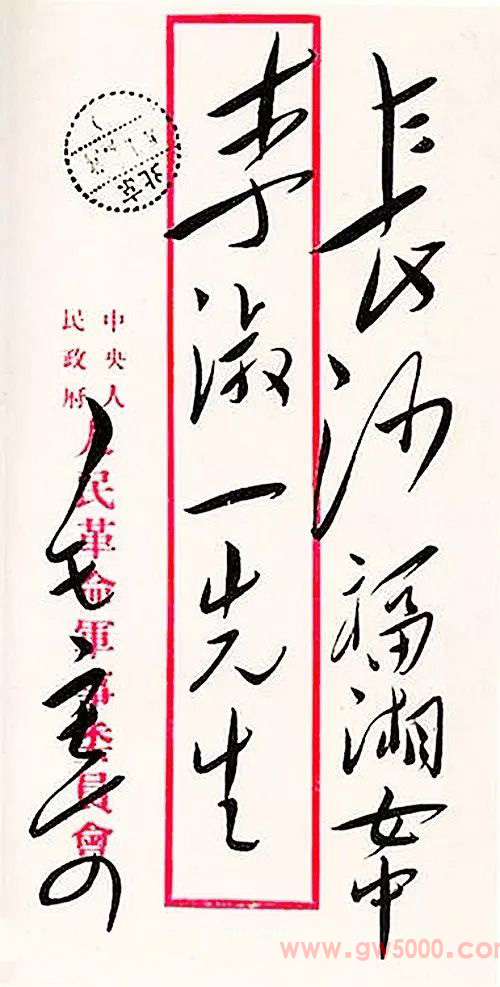 長沙福湘女中
李淑一先生
中央人
民政府
人民革命軍事委員會
毛
北京
www.gw5000.com